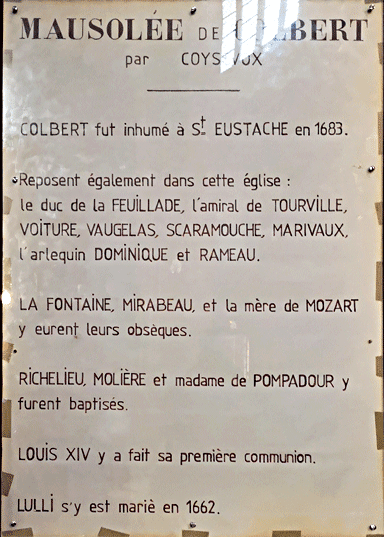 MAUSOLÉE DE COLBERT
par COYSEVOX
COLBERT fut inhumé à St EUSTACHE en 1683.
Reposent également dans cette église :
le duc de la FEUILLADE, l'amiral de TOURVILLE,
VOITURE, VAUGELAS, SCARAMOUCHE, MARIVAUX,
l'arlequin DOMINIQUE et RAMEAU.
LA FONTAINE, MIRABEAU, et la mère de MOZART
y eurent leurs obsèques.
RICHELIEU, MOLIÈRE et madame de POMPADOUR y
furent baptisés.
LOUIS XIV y a fait sa première communion.
LULLI s'y est mariè en 1662.